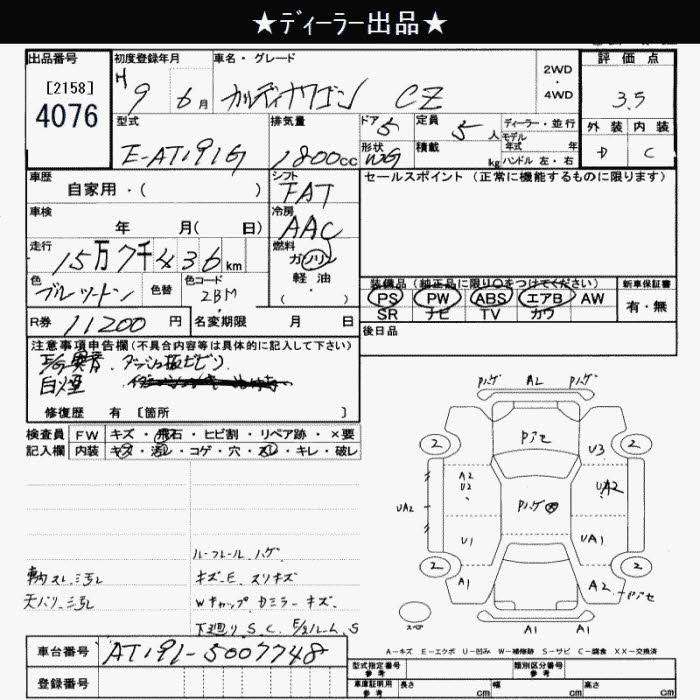 ★ディーラー出品★
出品番号 初度登録年月 車名・グレード 評価点
[2158] H 9 6月 カルディナワゴン CZ 2WD・4WD 3.5
4076
型式 排気量 ドア 5 定員 5人 ディーラー・並行 外装 内装
E-AT191G 1800cc 形状 WG 積載 kg モデル年式 年 D C
ハンドル 左・右
車歴 シフト セールスポイント (正常に機能するものに限ります)
自家用・( ) FAT
車検 冷房
年 月( 日) AAC
走行 15万7千436km 燃料
ガソリン
色 ブルーツートン 色替 色コード 2BM 軽油 装備品 (純正品に限り○をつけてください) 新車保証書
・( ) PS PW ABS エアB AW 有・無
R券 11200円 名変期限 月 日 SR ナビ TV カワ
注意事項申告欄(不具合内容等は具体的に記入して下さい) 後日品
E/G異音 ダッシュ板ビビリ
白煙
修復歴 有 [箇所 ]
検査員 FW キズ・飛石・ヒビ割・リペア跡・×要
記入欄 内装 キズ・汚レ・コゲ・穴・スレ・キレ・破レ
Pハゲ A2 Pハゲ
2 Pアセ 2
U3
A2
U2
UA2 Pハゲ
U1 UA1
2 2
A1 A2 Pアセ
スペア A1 A1
ルーフレール ハゲ
革内スレ、汚レ キズE スリキズ
天バリ、汚レ Wキャップ ドミラー キズ
下廻り S、C E/Gルーム S
A-キズ E-エクボ U-凹み W-補修跡 S-サビ C-腐食 XX-交換済
車台番号 AT191-5007748
登録番号
型式指定番号 参考 類別区分番号 参考
車庫証明用 参考 長さ cm 幅 cm 高さ cm